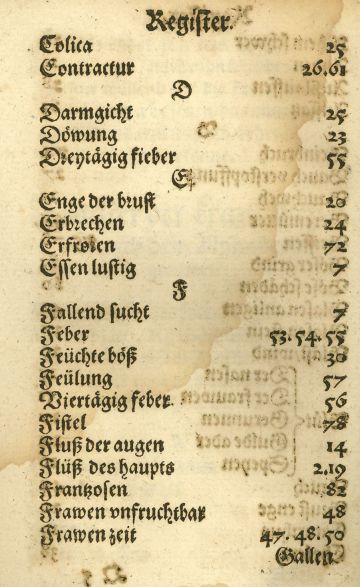 Register.
Colica 25
Contractur 26.61
D
Darmgicht 25
Döwung 23
Dreytägig fieber 55
E
Enge der brust 20
Erbrechen 24
Erfroren 72
Essen lustig 7
F
Fallend sucht 7
Feber 53.54.55
Feüchte böß 30
Feülung 57
Viertägig feber 56
Fistel 78
Fluß der augen 14
Flüß des haupts 2.19
Frantzosen 82
Frawen vnfruchtbar 48
Frawen zeit 47.48.50
Gallen